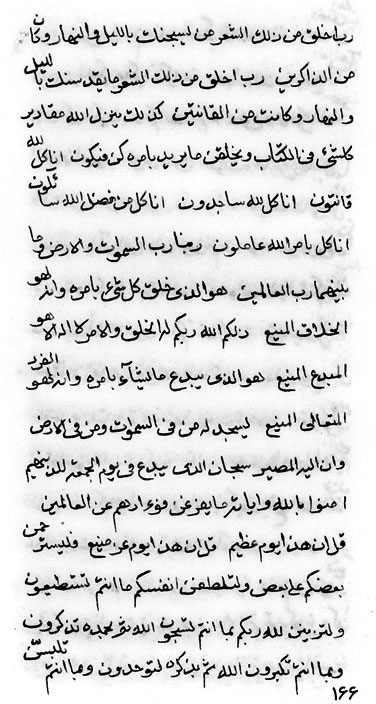 رب اخلق من ذلك الشعر من ليسبحنك بالليل والنهار وكان
من الذاكرين رب اخلق من ذلك الشعر ما يقدسنك بالليل
والنهار وكانت من القانتين كذلك ينزل الله مقادير
كلشئ فى الكتاب ويخلقن ما يريد بامره كن فيكون انا كل لله
قانتون انا كل لله ساجدون انا كل من فضل الله سائلون
انا كل بامر الله عاملون ربنا رب السموات والارض وما
بينهما رب العالمين هو الذى خلق كل شئ بامره وانه لهو
الخلاق المنيع ذلكم الله ربكم له الخلق والامر لا اله الا هو
المبدع المنيع هو الذى يبدع ما يشآء بامره وانه لهو الفرد
المتعالى المنيع يسجد له من فى السموات ومن فى الارض
وان اليه المصير سبحان الذى يبدع فى يوم الجمعة للذينهم
امنوا بالله واياته ما يفزغن فؤادهم عن العالمين
قل ان هذا يوم عظيم قل ان هذا يوم عز منيع فليسترحمن
بعضكم على بعض ولتلطفن انفسكم ما انتم تستطيعون
ولتزينن لله ربكم بما انتم لتسبحون الله ثم بحمده تذكرون
وبما انتم تكبرون الله ثم بذكره لتوحدون وبما انتم تلبسن
١٦٦